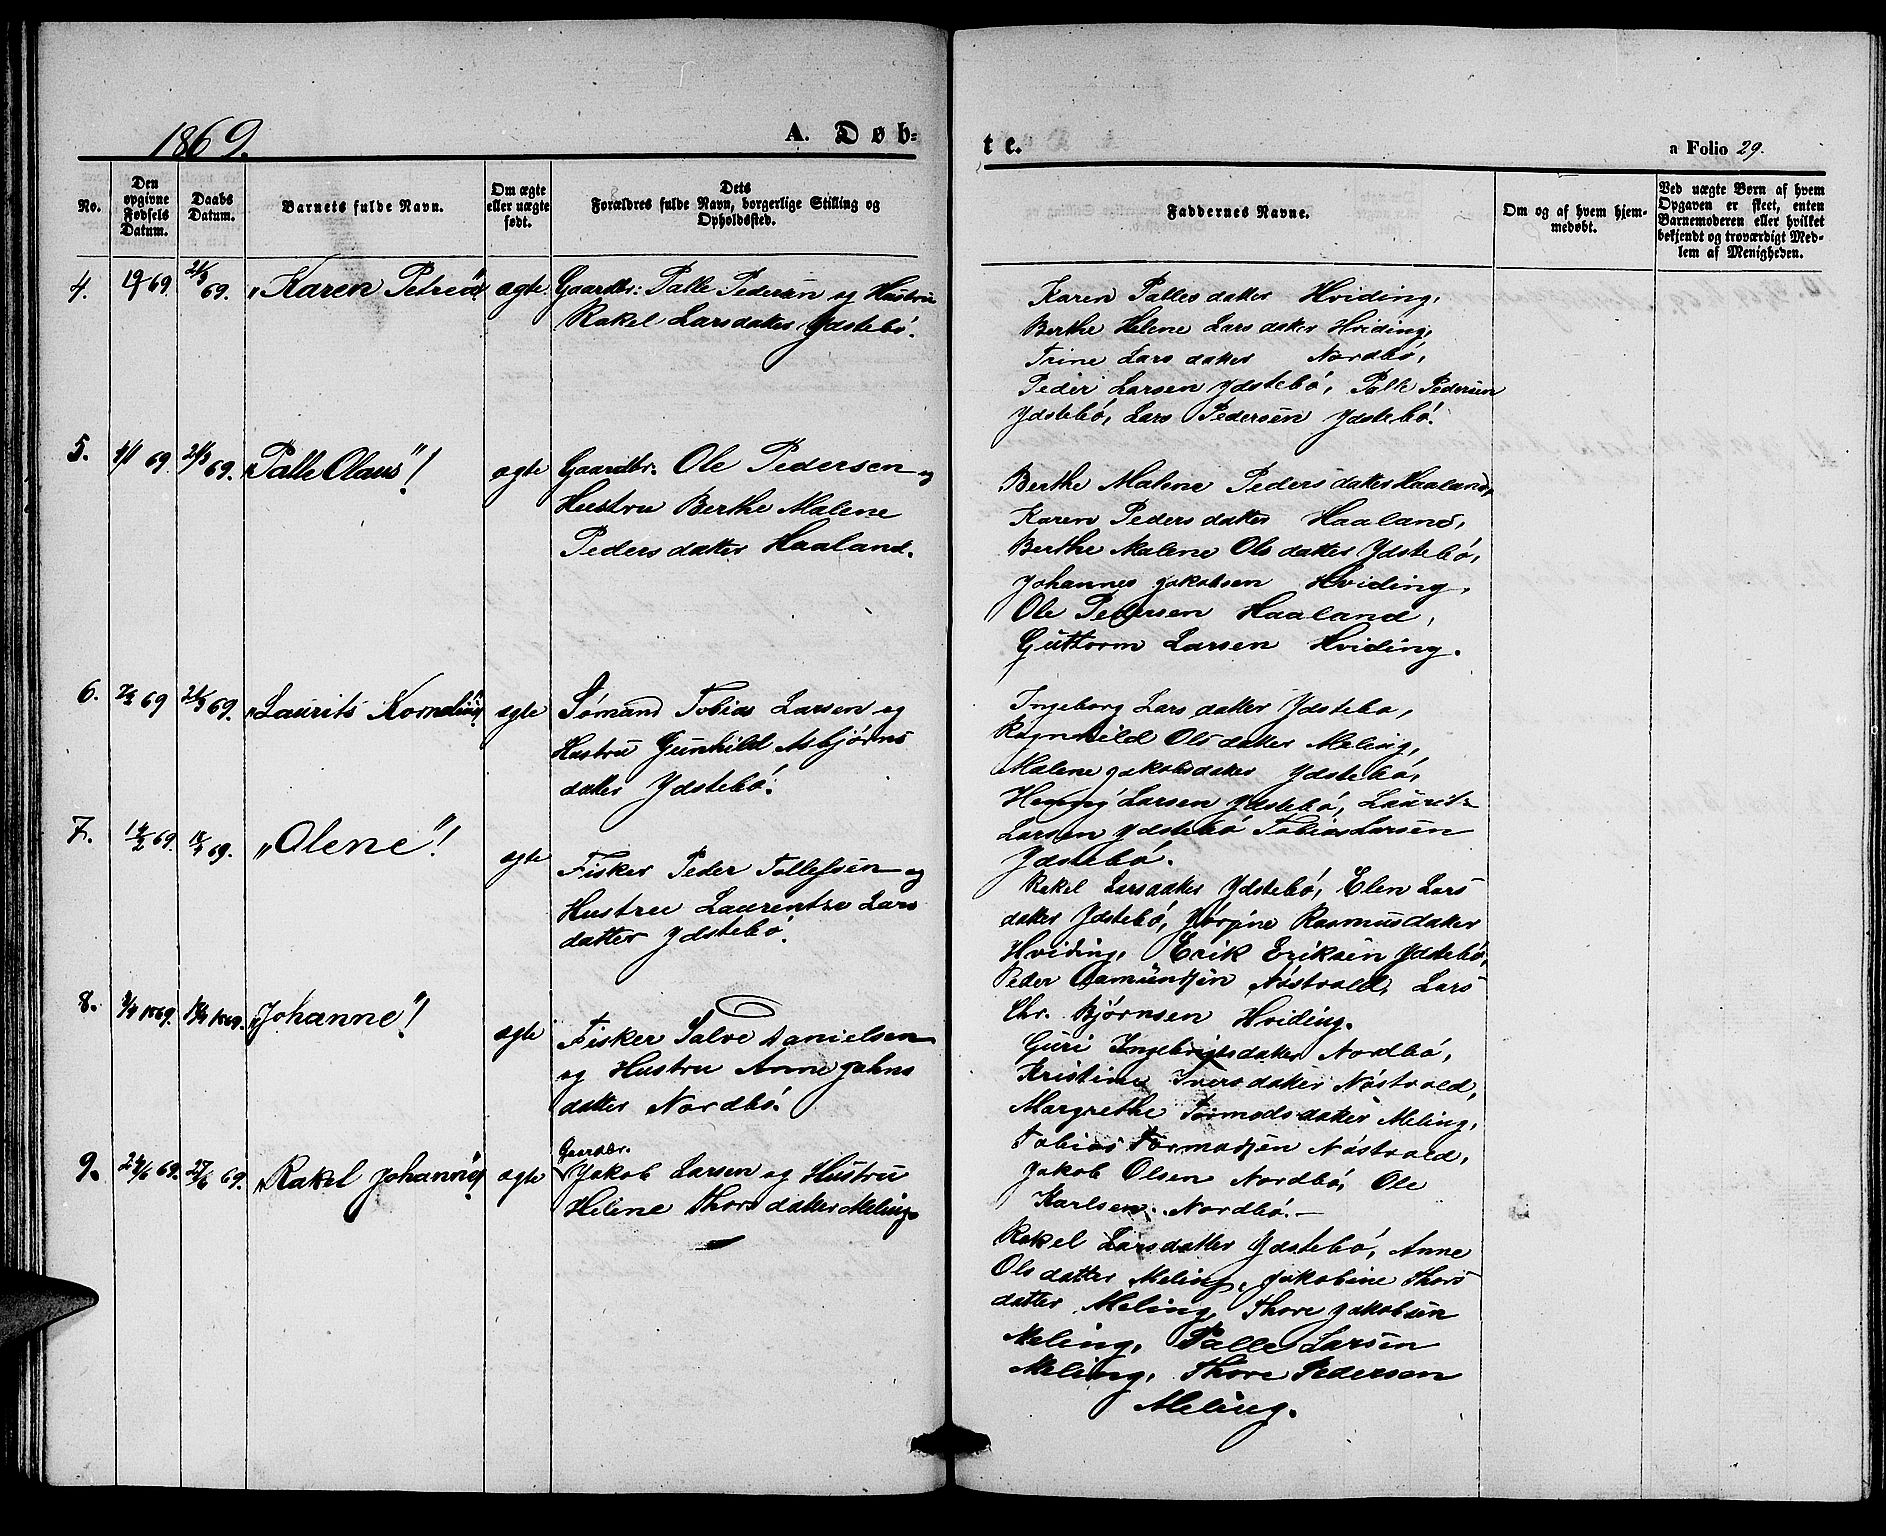 1869.
A. Døb-
No.
Den opgivne Fødsels Datum.
Daabs Datum.
Barnets fulde Navn.
Om ægte eller uægte født.
Dets Forældres fulde Navn, borgerlige Stilling og Opholdssted.
4. 69 21/3 69. „Karen Petrea" ægte. Gaardbr: Palle Pedersen og Hustru
Rakel Larsdatter Ydstebö.
5. 69 21/3 69. „Palle Olaus"! ægte Gaardbr. Ole Pedersen og
Hustru Berthe Malene
Pedersdatter Haaland.
6. 69 21/3 69. „Laurits Kornelius" ægte Sömand Tobias Larsen og
Hustru Gunhild Asbjørns
datter Ydstebö.
7. 69. 69. „Olene"! ægte
Fisker Peder Tollefsen og
Hustru Laurentze Lars
datter Ydstebö.
8. 1869. 1869. „Johanne"! ægte
Fisker Salve Danielsen
og Hustru Anne Johns
datter Nordbö.
9. 69. 27/6 69. „Rakel Johanne" ægte Gaardbr.
Jakob Larsen og Hustru
Helene Thorsdatter Meling.
te.
a Folio 29.
Faddernes Navne.
Om og af hvem hjem-
medøbt.
Ved uægte Børn af hvem
Opgaven er skeet, enten
Barnemoderen eller hvilket
bekjendt og troværdigt Med-
lem af Menigheden.
Karen Pallesdatter Hviding,
Berthe Helene Larsdatter Hviding,
Trine Larsdatter Nordbö,
Peder Larsen Ydstebö, Palle Pedersen
Ydstebö, Lars Pedersen Ydstebö.
Berthe Malene Pedersdatter Haaland,
Karen Pedersdatter Haaland,
Berthe Malene Olsdatter Ydstebö,
Johannes Jakobsen Hviding,
Ole Pedersen Haaland,
Guttorm Larsen Hviding.
Ingeborg Larsdatter Ydstebo,
Ragnhild Olsdatter Meling,
Malene Jakobsdatter Ydstebö,
Larsen Ydstebö, Laurits
Larsen Ydstebö Tobias Larsen
Ydstebö.
Rakel Larsdatter Ydstebö, Elen Lars
datter Ydstebö, Jörgine Rasmusdatter
Hviding, Erik Eriksen Ydstebö,
Peder Aamundsen Nöstvold, Lars
Chr. Bjørnsen Hviding.
Guri Ingebrigtsdatter Nordbö,
Kristine Iversdatter Nöstvold,
Margrethe Tormodsdatter Meling,
Tobias Tormodsen Nöstvold,
Jakob Olsen Nordbö, Ole
Karlsen Nordbö.—
Rakel Larsdatter Ydstebö, Anne
Olsdatter Meling, Jakobine Thors
datter Meling, Thore Jakobsen
Meling, Palle Larsen
Meling, Thore Pedersen
Meling.